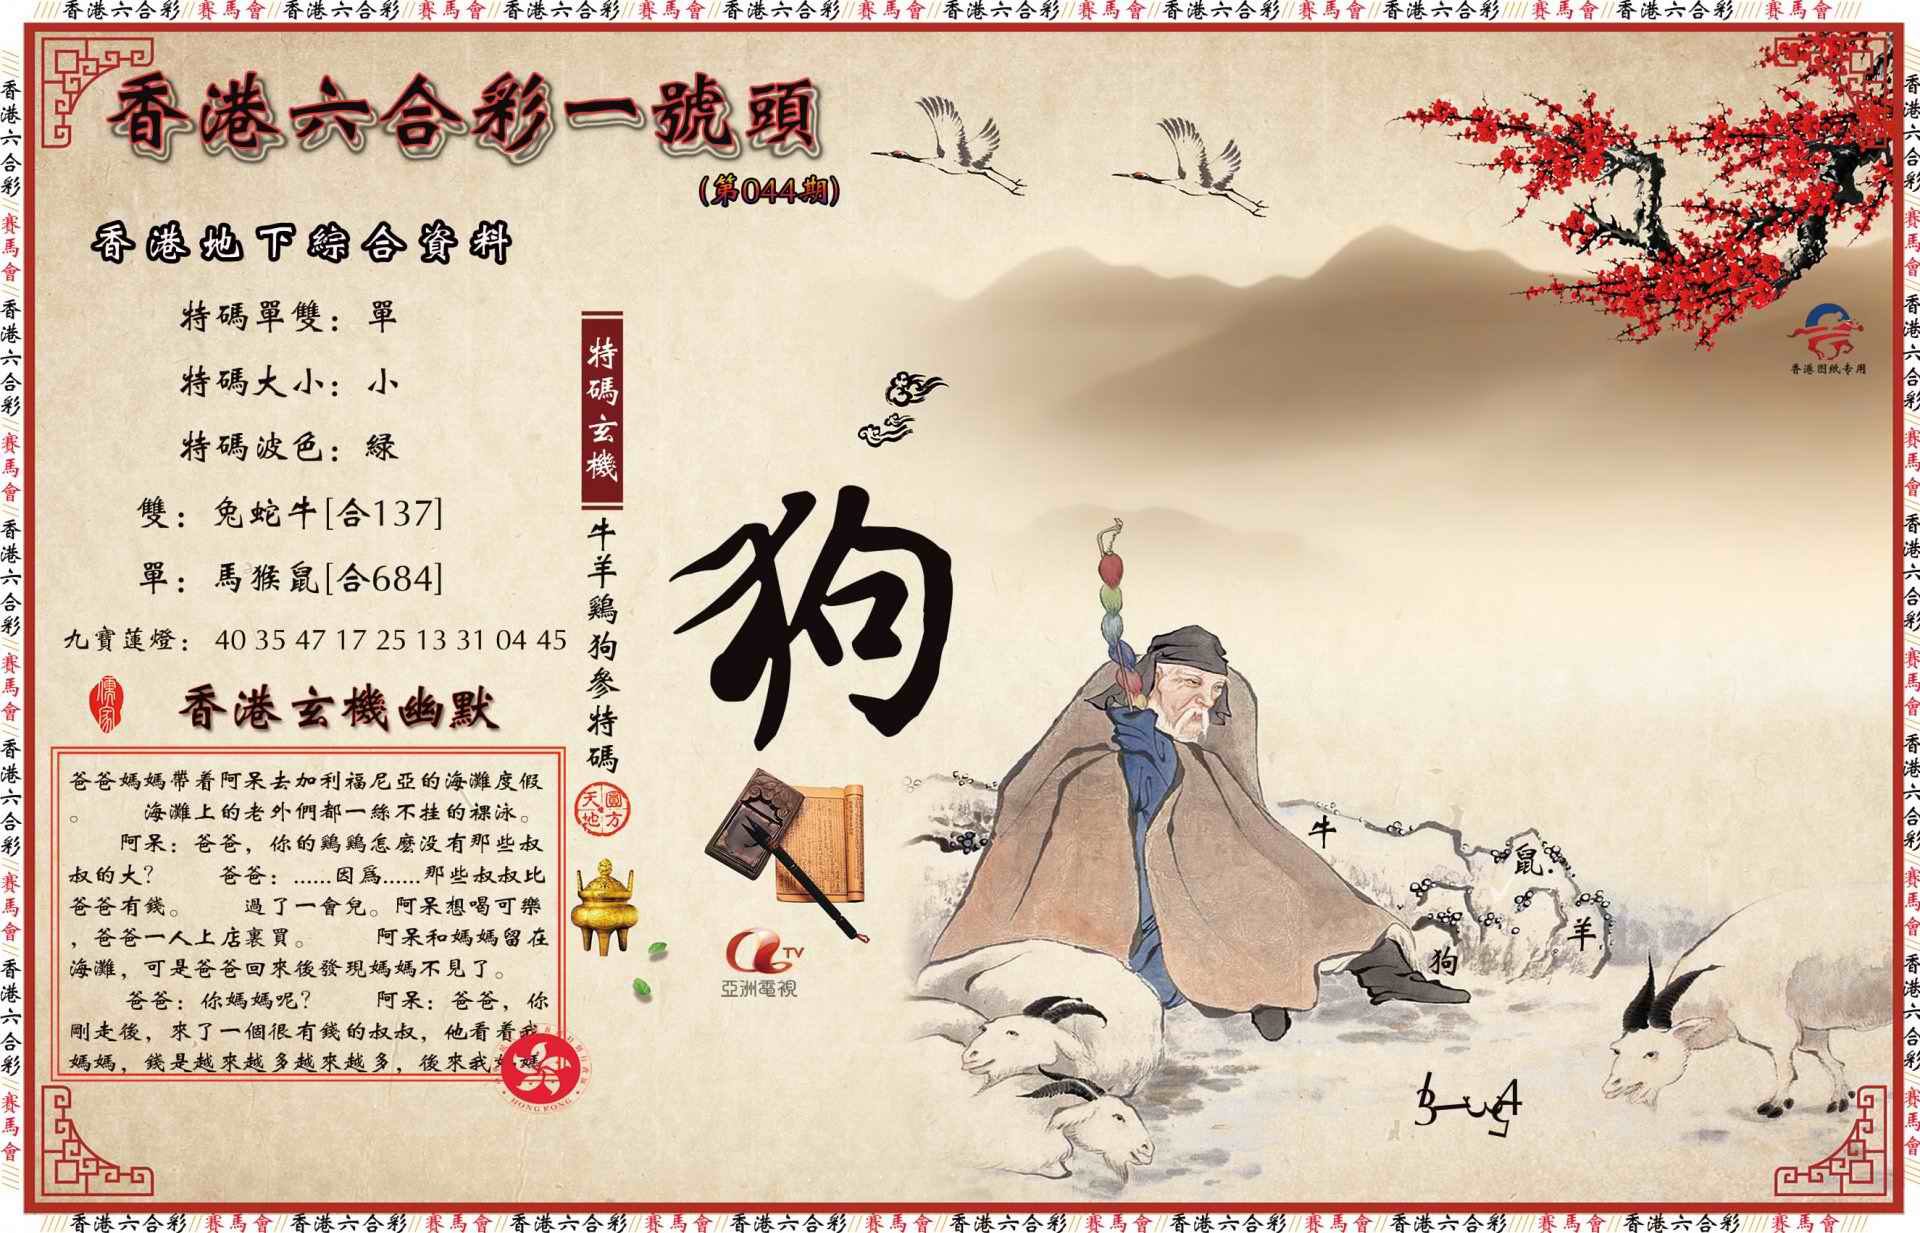 香港六合彩一號頭
(第044期)
香港地下綜合資料
特碼單雙：單
特碼大小：小
特碼波色：緑
雙：兔蛇牛[合137]
單：馬猴鼠[合684]
九寶蓮燈：40 35 47 17 25 13 31 04 45
儒家
香港玄機幽默
爸爸媽媽帶着阿呆去加利福尼亞的海灘度假
。　　海灘上的老外們都一絲不挂的裸泳。
阿呆：爸爸，你的鷄鷄怎麽没有那些叔
叔的大？　　爸爸：……因爲……那些叔叔比
爸爸有錢。　　過了一會兒。阿呆想喝可樂
，爸爸一人上店裏買。　　阿呆和媽媽留在
海灘，可是爸爸回來後發現媽媽不見了。
爸爸：你媽媽呢？　　阿呆：爸爸，你
剛走後，來了一個很有錢的叔叔，他看着我
媽媽，錢是越來越多越來越多，後來我媽媽
HONG KONG
特碼玄機
牛羊鷄狗參特碼
天圓地方
狗
TV
亞洲電視
香港图纸专用
牛
鼠
羊
狗
香港六合彩 賽馬會 香港六合彩 賽馬會 香港六合彩 賽馬會 香港六合彩 賽馬會 香港六合彩 賽馬會 香港六合彩 賽馬會 香港六合彩 賽馬會 香港六合彩 賽馬會
香港六合彩 賽馬會 香港六合彩 賽馬會 香港六合彩 賽馬會 香港六合彩 賽馬會 香港六合彩 賽馬會
香港六合彩 賽馬會 香港六合彩 賽馬會 香港六合彩 賽馬會 香港六合彩 賽馬會 香港六合彩 賽馬會
香港六合彩 賽馬會 香港六合彩 賽馬會 香港六合彩 賽馬會 香港六合彩 賽馬會 香港六合彩 賽馬會 香港六合彩 賽馬會 香港六合彩 賽馬會 香港六合彩 賽馬會